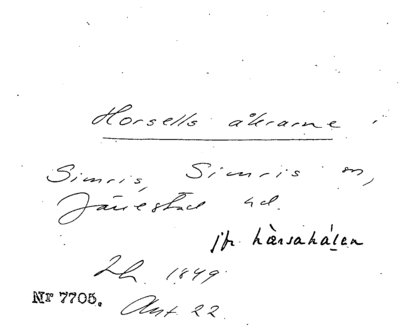 Horsells åkrarne
Simris, Simris sn,
Järrestad hd.
jfr hàrsahálan
Lh. 1849
Nr 7705. Akt 22